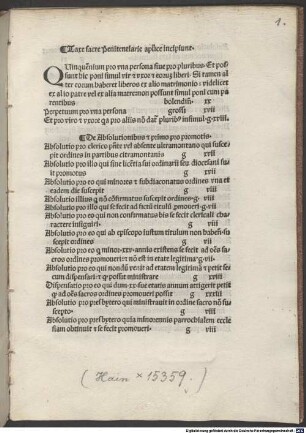 1.
Taxe sacre Penitentiarie aplice incipiunt.
QUinquēnium pro vna persona siue pro pluribus. Et pos
sunt hic poni simul vir et vxor et eorum liberi. Si tamen al
ter eorum haberet liberos ex alio matrimonio videlicet
ex alio patre vel ex alia matre non possunt simul poni cum pa
rentibus bolendin. xx
Perpetuum pro vna persona grossi xvi
Et pro viro et vxore qa pro aliis nō datr pluribus insimul g. xviii.
De Absolutionibus et primo pro promotis.
Absolutio pro clerico pnte vel absente ultramontano qui susce
pit ordines in partibus citramontanis g xvii
Absolutio pro illo qui sine licētia sui ordinarii seu diocesani fu
it promotus g xvii
Absolutio pro eo qui minores et subdiaconatus ordines vna et
eadem die suscepit g xvi
Absolutio illius q nō confirmatus suscepit ordines g. viii
Absolutio pro illo qui se fecit ad fictū titulū
Absolutio pro eo qui non confirmatus bis se fecit clericali cha
ractere insigniri. g viii
Absolutio pro eo qui ab episcopo iustum titulum non haben
suscepit ordines g viii
Absolutio pro eo q minor xxv. annis existens se fecit ad oēs sa
cros ordines promoueri et nō est in etate legitima g. vii.
Absolutio pro eo qui non dū venit ad etatem legitimā et petit se
cum dispensari et possit ministrare g xviii
Dispensatio pro eo qui dum xx. fuit etatis annum attigerit petit
ad oēs sacros ordines promoueri possit g xxxii
Absolutio pro presbytero qui ministrauit in ordine sacro nō su
scepto. g viii
Absolutio pro presbytero qui in iuuentis parrochialem eccle
siam obtinuit et se fecit promoueri. g viii
(Hain × 15359.)